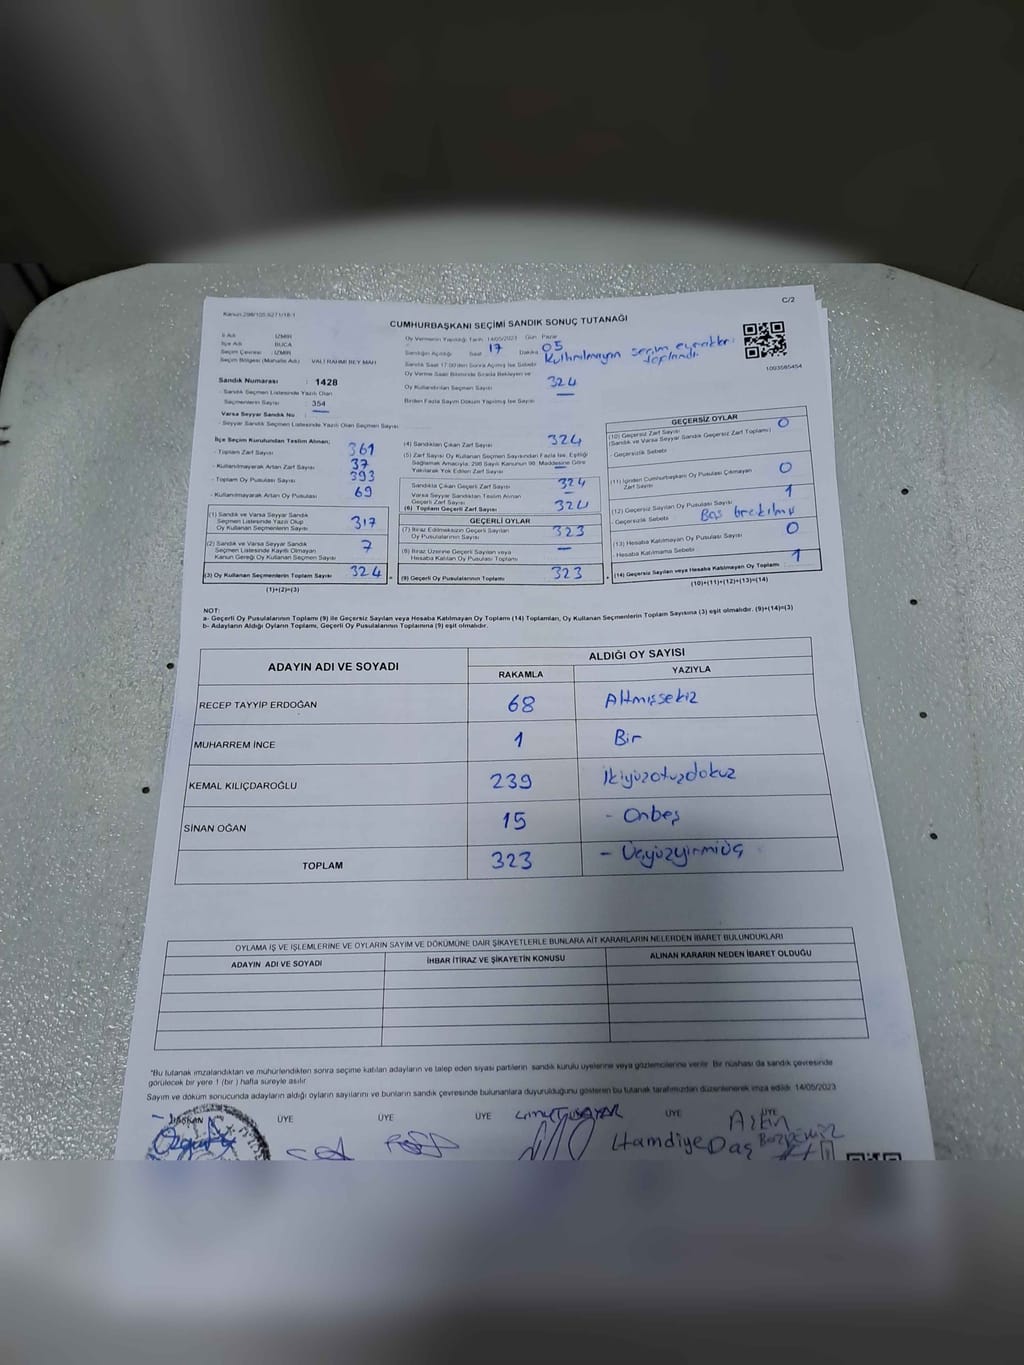 Kanun:298/105,6271/18-1
C/2
CUMHURBAŞKANI SEÇİMİ SANDIK SONUÇ TUTANAĞI
İl Adı : İZMİR
İlçe Adı : BUCA
Seçim Çevresi : İZMİR
Seçim Bölgesi (Mahalle Adı) : VALİ RAHMİ BEY MAH
Oy Vermenin Yapıldığı Tarih: 14/05/2023 Gün Pazar
Sandığın Açıldığı Saat 17 Dakika 05
Sandık Saat 17:00'den Sonra Açılmış İse Sebebi
Kullanılmayan seçim evrakları toplandı.
Oy Verme Saati Bitiminde Sırada Bekleyen ve
Oy Kullandırılan Seçmen Sayısı 324
Birden Fazla Sayım Döküm Yapılmış İse Sayısı
1003585454
Sandık Numarası : 1428
- Sandık Seçmen Listesinde Yazılı Olan
Seçmenlerin Sayısı : 354
Varsa Seyyar Sandık No :
- Seyyar Sandık Seçmen Listesinde Yazılı Olan Seçmen Sayısı:
İlçe Seçim Kurulundan Teslim Alınan;
- Toplam Zarf Sayısı 361
- Kullanılmayarak Artan Zarf Sayısı 37
- Toplam Oy Pusulası Sayısı 393
- Kullanılmayarak Artan Oy Pusulası 69
(1) Sandık ve Varsa Seyyar Sandık
Seçmen Listesinde Yazılı Olup
Oy Kullanan Seçmenlerin Sayısı 317
(2) Sandık ve Varsa Seyyar Sandık
Seçmen Listesinde Kayıtlı Olmayan
Kanun Gereği Oy Kullanan Seçmen Sayısı 7
(3) Oy Kullanan Seçmenlerin Toplam Sayısı 324
(1)+(2)=(3)
(4) Sandıktan Çıkan Zarf Sayısı 324
(5) Zarf Sayısı Oy Kullanan Seçmen Sayısından Fazla İse, Eşitliği
Sağlamak Amacıyla, 298 Sayılı Kanunun 98. Maddesine Göre
Yakılarak Yok Edilen Zarf Sayısı
Sandıkta Çıkan Geçerli Zarf Sayısı 324
Varsa Seyyar Sandıktan Teslim Alınan
Geçerli Zarf Sayısı
(6) Toplam Geçerli Zarf Sayısı 324
GEÇERLİ OYLAR
(7) İtiraz Edilmeksizin Geçerli Sayılan
Oy Pusulalarının Toplamı 323
(8) İtiraz Üzerine Geçerli Sayılan veya
Hesaba Katılan Oy Pusulası Toplamı –
(9) Geçerli Oy Pusulalarının Toplamı 323
GEÇERSİZ OYLAR
(10) Geçersiz Zarf Sayısı 0
(Sandık ve Varsa Seyyar Sandık Geçersiz Zarf Toplamı)
- Geçersizlik Sebebi
(11) İçinden Cumhurbaşkanı Oy Pusulası Çıkmayan
Zarf Sayısı 0
(12) Geçersiz Sayılan Oy Pusulası Sayısı 1
- Geçersizlik Sebebi Boş
(13) Hesaba Katılmayan Oy Pusulası Sayısı 0
Hesaba Katılmama Sebebi
(14) Geçersiz Sayılan veya Hesaba Katılmayan Oy Toplamı 1
(10)+(11)+(12)+(13)=(14)
NOT:
a- Geçerli Oy Pusulalarının Toplamı (9) ile Geçersiz Sayılan veya Hesaba Katılmayan Oy Toplamı (14) Toplamları, Oy Kullanan Seçmenlerin Toplam Sayısına (3) eşit olmalıdır. (9)+(14)=(3)
b- Adayların Aldığı Oyların Toplamı, Geçerli Oy Pusulalarının Toplamına (9) eşit olmalıdır.
ADAYIN ADI VE SOYADI
ALDIĞI OY SAYISI
RAKAMLA YAZIYLA
RECEP TAYYİP ERDOĞAN 68 Altmışsekiz
MUHARREM İNCE 1 Bir
KEMAL KILIÇDAROĞLU 239 İkiyüzotuzdokuz
SİNAN OĞAN 15 - Onbeş
TOPLAM 323 - Üçyüzyirmiüç
OYLAMA İŞ VE İŞLEMLERİNE VE OYLARIN SAYIM VE DÖKÜMÜNE DAİR ŞİKAYETLERLE BUNLARA AİT KARARLARIN NELERDEN İBARET BULUNDUKLARI
ADAYIN ADI VE SOYADI İHBAR İTİRAZ VE ŞİKAYETİN KONUSU ALINAN KARARIN NEDEN İBARET OLDUĞU
"Bu tutanak imzalandıktan ve mühürlendikten sonra seçime katılan adayların ve talep eden siyasi partilerin sandık kurulu üyelerine veya gözlemcilerine verilir. Bir nüshası da sandık çevresinde
görülecek bir yere 1 (bir) hafta süreyle asılır.
Sayım ve döküm sonucunda adayların aldığı oyların sayılarını ve bunların sandık çevresinde bulunanlara duyurulduğunu gösteren bu tutanak tarafımızdan düzenlenerek imza edildi. 14/05/2023
BAŞKAN ÜYE ÜYE ÜYE ÜYE ÜYE
Hamdiye Daş